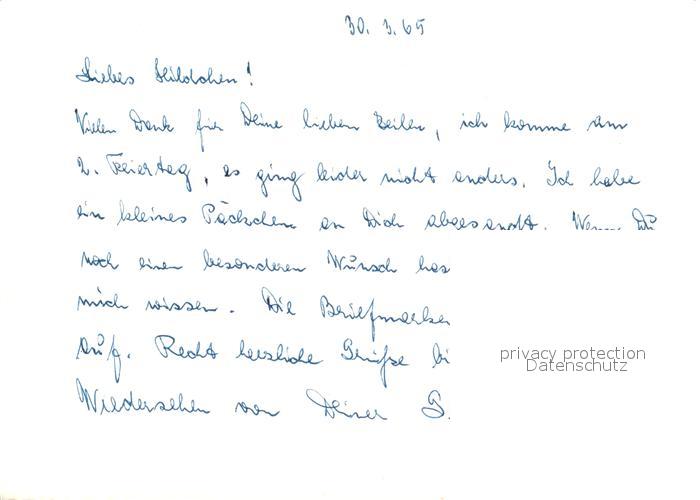 30. 3. 65
Liebes Hildchen!
Vielen Dank für Deine lieben Zeilen, ich komme am
2. Feiertag, es ging leider nicht anders. Ich habe
ein kleines Päckchen an Dich abgesandt. Wenn Du
noch einen besonderen Wunsch has
mich wissen. Die Briefmarken
auf. Recht herzliche Grüße bi
privacy protection
Datenschutz
Wiedersehen von Deiner G.